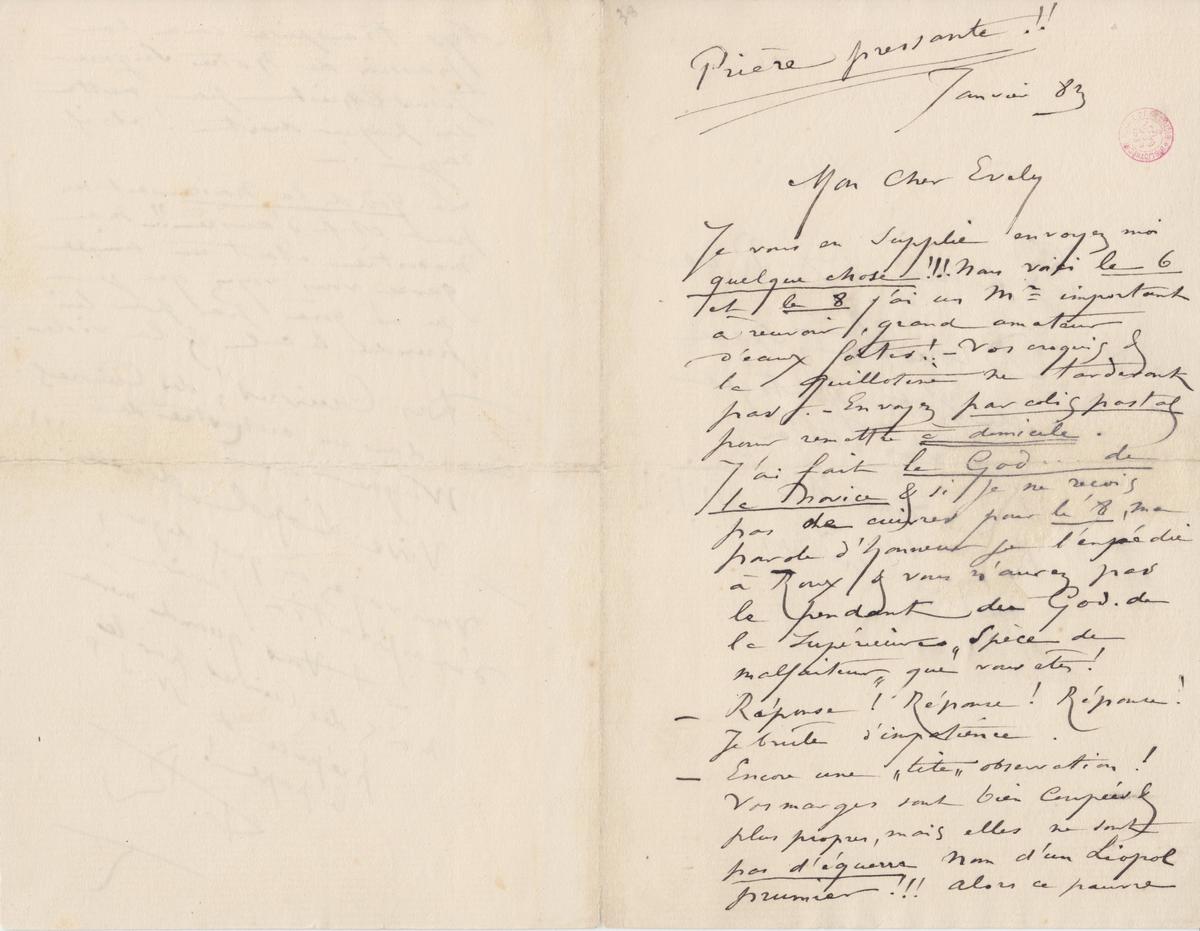 Prière pressante !!
Janvier 83
Mon Cher Evely
Je vous en supplie envoyez moi
quelque chose !!! Nous voici le 6
et le 8 j'ai un Mr important
à recevoir, grand amateur
d'eaux fortes ! – Vos croquis &
la Guillotine ne tarderont
pas. – Envoyez par colis postal
pour remettre à domicile.
J'ai fait le God... de
la Novice & si je ne reçois
pas de cuivres pour le 8, ma
parole d'honneur je l'expédie
à Roux & vous n'aurez pas
le pendant du God. de
la Supérieure „ Spèce de
malfaiteur „ que vous etes !
– Réponse ! Réponse ! Réponse !
Je brule d'impatience .
– Encore une „tite„ observation !
Vos marges sont bien coupées &
plus propres, mais elles ne sont
pas d'équerre nom d'un Liopol
prumier !!! Alors ce pauvre